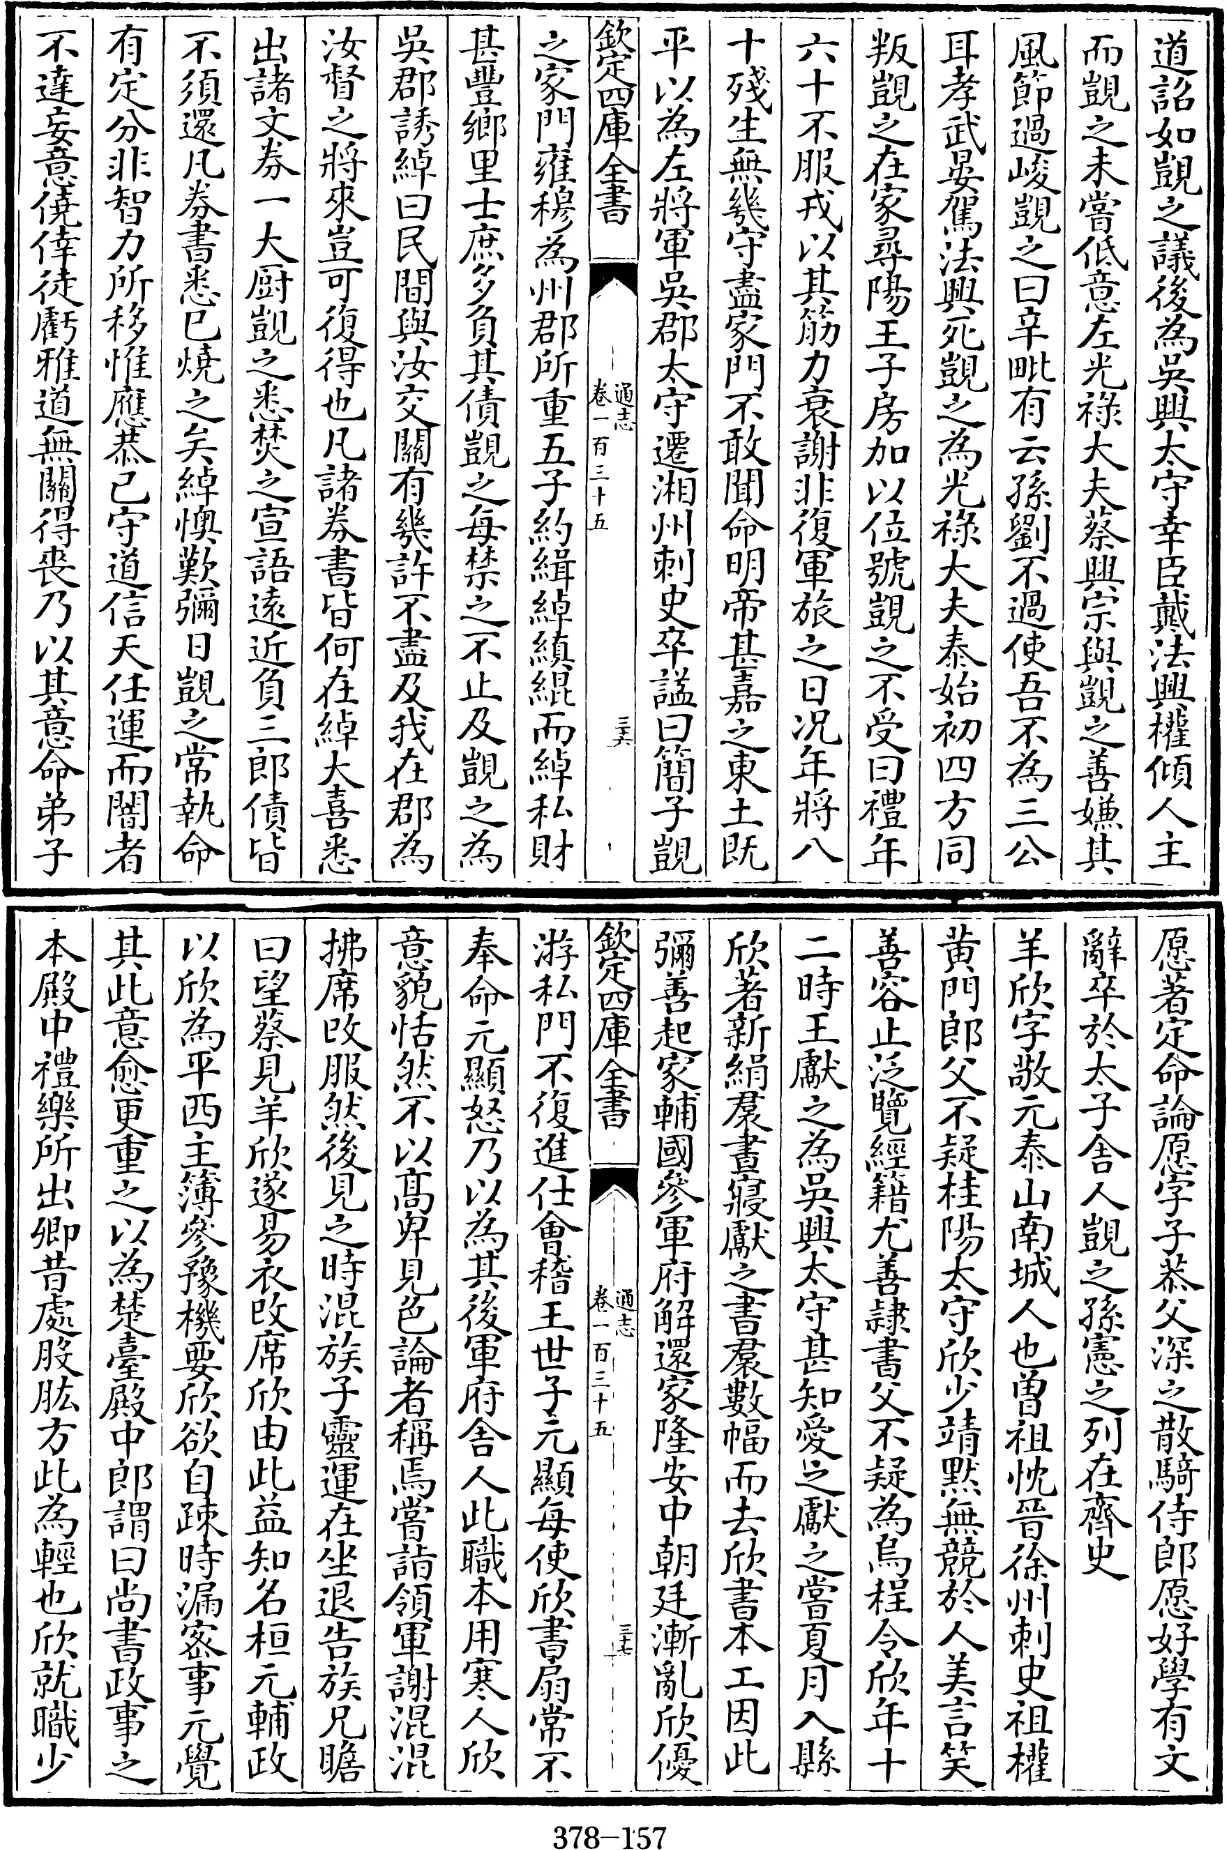 道詔如覬之議後為吳興太守幸臣戴法興權傾人主
而覬之未嘗低意左光祿大夫蔡興宗與覬之善嫌其
風節過峻覬之曰辛毗有云孫劉不過使吾不為三公
耳孝武晏駕法興死覬之為光祿大夫泰始初四方同
叛覬之在家尋陽王子房加以位號覬之不受曰禮年
六十不服戎以其筋力衰謝非復軍旅之日况年將八
十殘生無幾守盡家門不敢聞命明帝甚嘉之東土既
平以為左將軍吳郡太守遷湘州刺史卒謚曰簡子覬
欽定四庫全書
通志
卷一百三十五
三十六
之家門雍穆為州郡所重五子約緝綽縝緄而綽私財
甚豐鄉里士庶多負其債覬之每禁之不止及覬之為
吳郡誘綽曰民間與汝交關有幾許不盡及我在郡為
汝督之將來豈可復得也凡諸券書皆何在綽大喜悉
出諸文券一大厨覬之悉焚之宣語遠近負三郎債皆
不須還凡券書悉已燒之矣綽懊歎彌日覬之常執命
有定分非智力所移惟應恭己守道信天任運而闇者
不達妄意僥倖徒虧雅道無關得喪乃以其意命弟子
愿著定命論愿字子恭父深之散騎侍郎愿好學有文
辭卒於太子舍人覬之孫憲之列在齊史
羊欣字敬元泰山南城人也曽祖忱晉徐州刺史祖權
黄門郎父不疑桂陽太守欣少靖黙無競於人美言笑
善容止泛覽經籍尤善隸書父不疑為烏程令欣年十
二時王獻之為吳興太守甚知愛之獻之嘗夏月入縣
欣著新絹裙晝寢獻之書裙數幅而去欣書本工因此
彌善起家輔國參軍府解還家隆安中朝廷漸亂欣優
欽定四庫全書
通志
卷一百三十五
三十七
游私門不復進仕會稽王世子元顯每使欣書扇常不
奉命元顯怒乃以為其後軍府舍人此職本用寒人欣
意貌恬然不以髙卑見色論者稱焉嘗詣領軍謝混混
拂席改服然後見之時混族子靈運在坐退告族兄瞻
曰望蔡見羊欣遂易衣改席欣由此益知名桓元輔政
以欣為平西主簿參豫機要欣欲自踈時漏宻事元覺
其此意愈更重之以為楚臺殿中郎謂曰尚書政事之
本殿中禮樂所出卿昔處股肱方此為輕也欣就職少
378-157